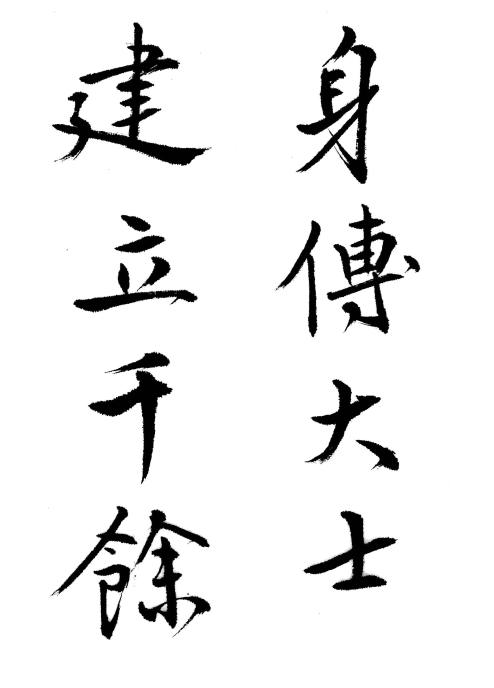 身傅大士
建立千餘